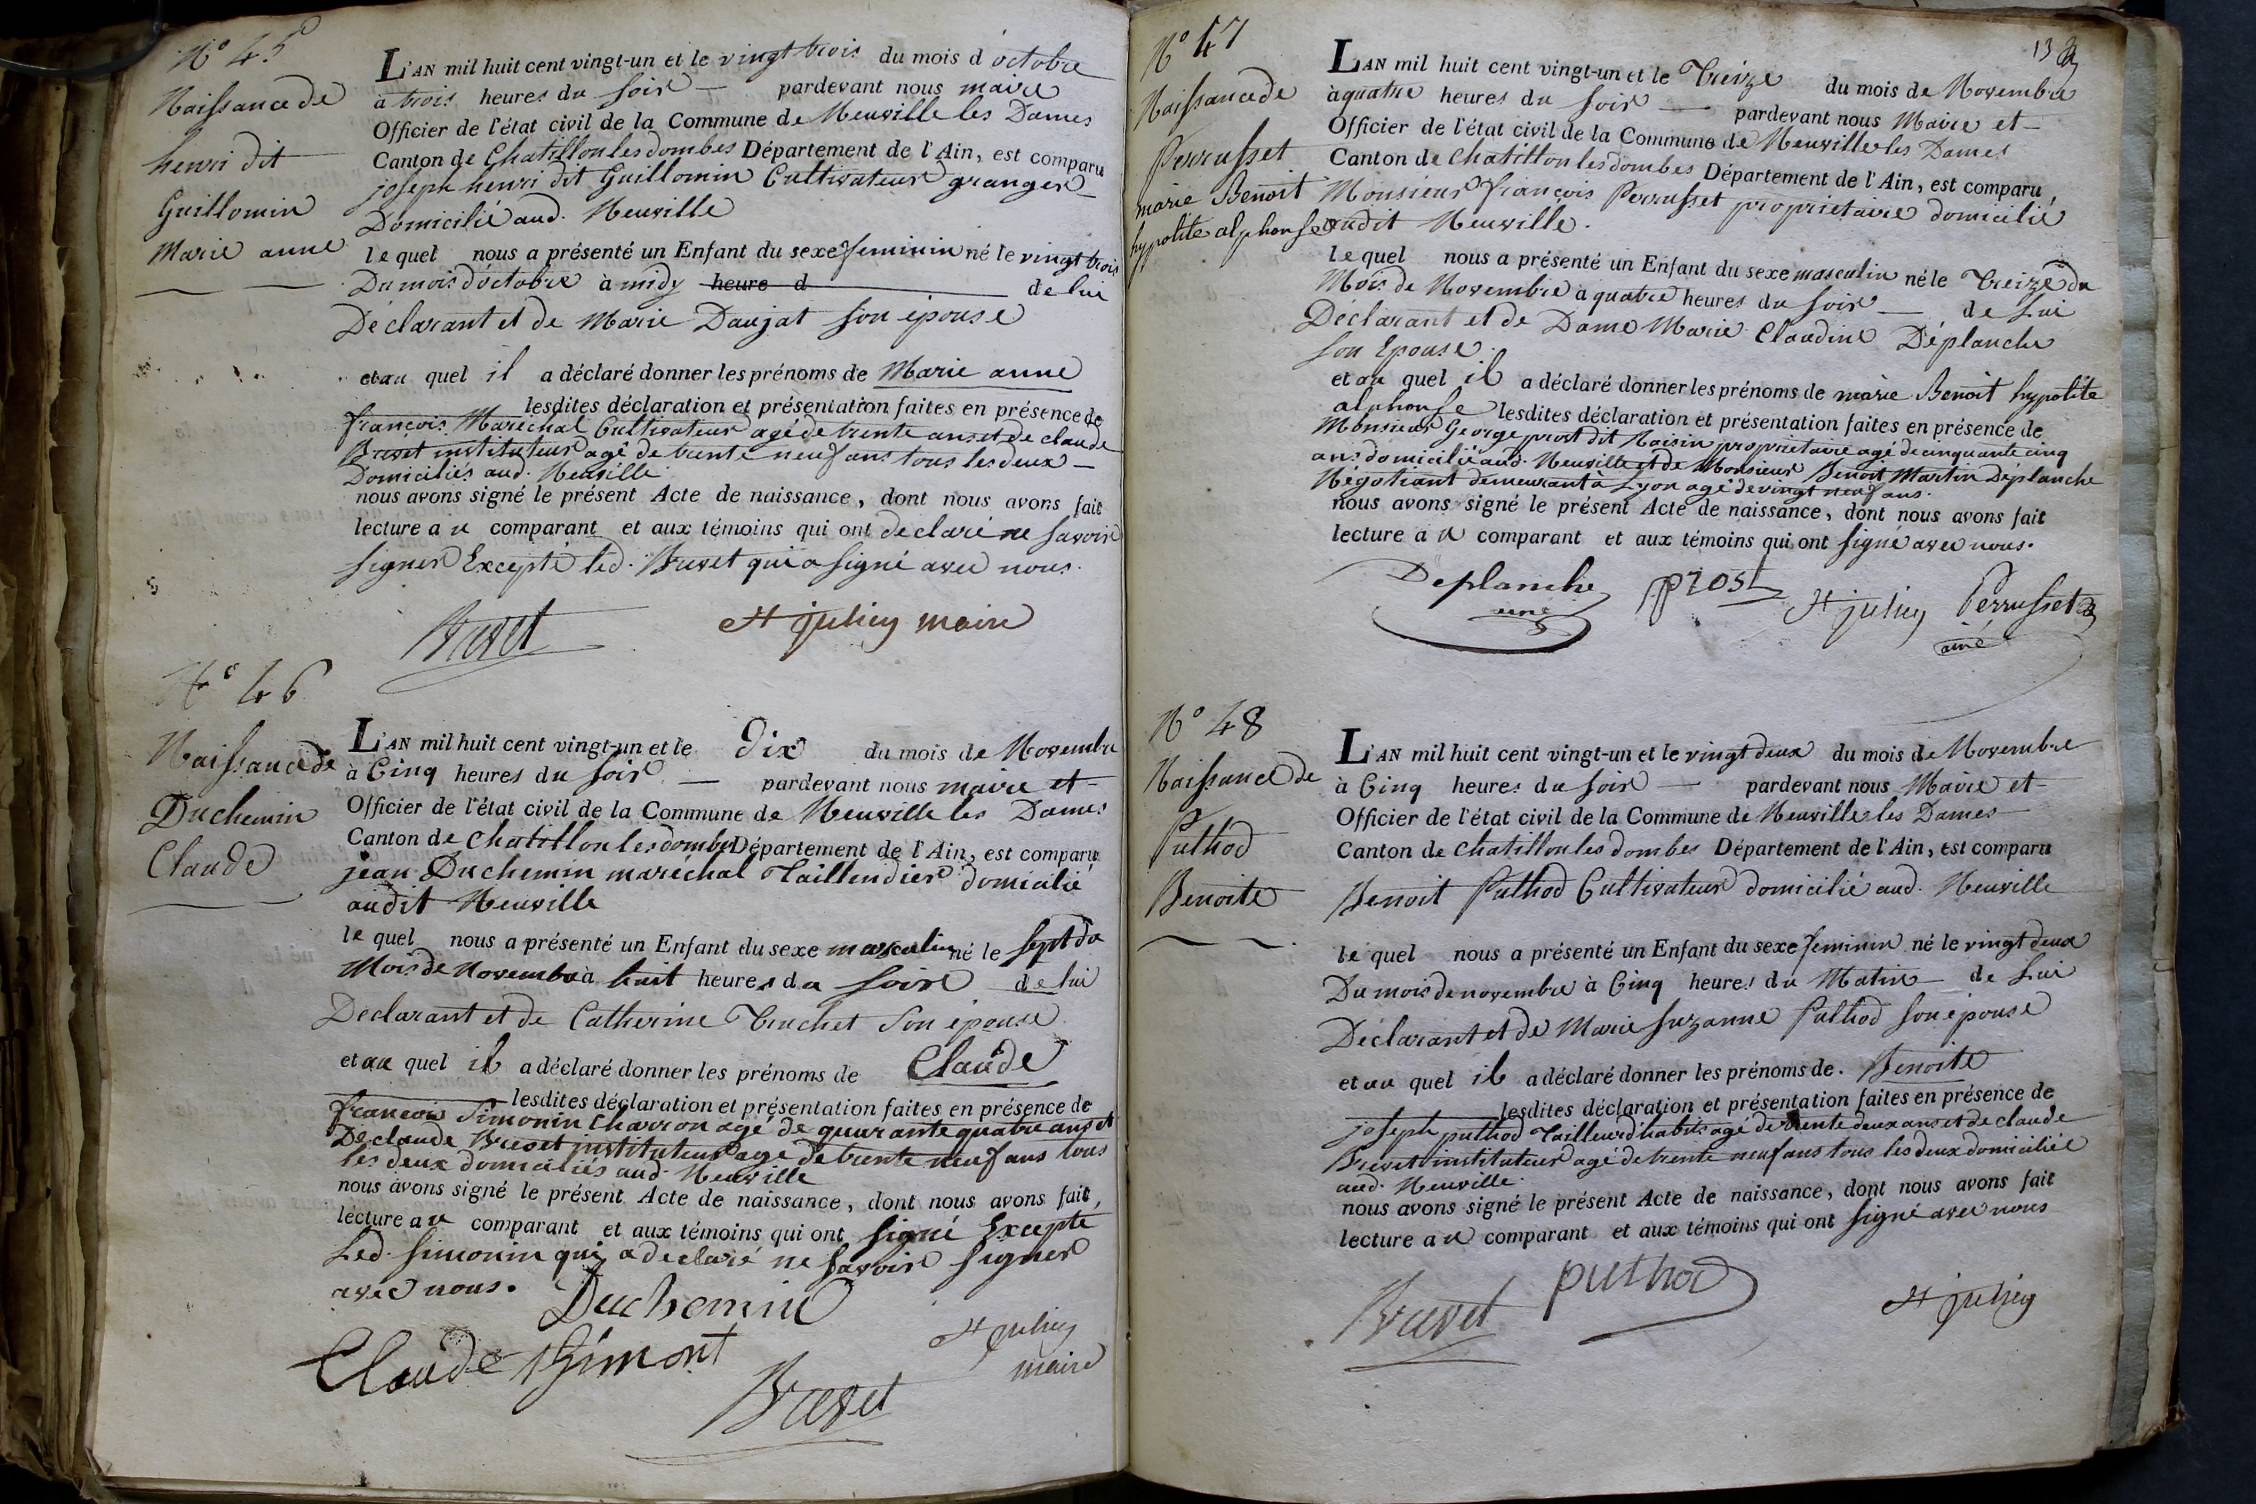 N° 45
Naissance de
henri dit
Guillomin
Marie anne
L'AN mil huit cent vingt-un et le vingt trois du mois d'octobre
à trois heures du soir — pardevant nous maire
Officier de l'état civil de la Commune de Neuville les Dames
Canton de Chatillon les dombes Département de l'Ain, est comparu
joseph henri dit Guillomin Cultivateur granger
Domicilié aud. Neuville
le quel nous a présenté un Enfant du sexe feminin né le vingt trois
Du mois d'octobre à midy heure d de lui
Déclarant et de Marie Daujat son épouse
et au quel il a déclaré donner les prénoms de Marie anne
lesdites déclaration et présentation faites en présence de
françois Maréchal Cultivateur agé de trente ans et de claude
Brevet instituteur agé de trente neuf ans tous les deux —
Domiciliés aud. Neuville
nous avons signé le présent Acte de naissance, dont nous avons fait
lecture au comparant et aux témoins qui ont declaré ne savoir
signer Excepté led. Brevet qui a signé avec nous.
Brevet st julien maire
N° 46
Naissance de
Duchemin
Claude
L'AN mil huit cent vingt-un et le Dix du mois de Novembre
à Cinq heures du soir — pardevant nous maire et
Officier de l'état civil de la Commune de Neuville les Dames
Canton de Chatillon les dombes Département de l'Ain, est comparu
jean Duchemin maréchal Taillendier domicilié
audit Neuville
le quel nous a présenté un Enfant du sexe masculin né le sept du
Mois de Novembre à huit heures du soir de lui
Declarant et de Catherine Truchet son épouse
et au quel il a déclaré donner les prénoms de Claude
lesdites déclaration et présentation faites en présence de
francois Simonin Charron agé de quarante quatre ans et
De claude Brevet instituteur agé de trente neuf ans tous
les deux domiciliés aud. Neuville
nous avons signé le présent Acte de naissance, dont nous avons fait
lecture au comparant et aux témoins qui ont signé Excepté
Led. Simonin qui a declaré ne savoir signer
avec nous.
Duchemin
Claude Simont st julien
maire
Brevet
N° 47
Naissance de
Perrusset
marie Benoit
hypolite alphonse
13
L'AN mil huit cent vingt-un et le Treize du mois de Novembre
à quatre heures du soir — pardevant nous Maire et —
Officier de l'état civil de la Commune de Neuville les Dames
Canton de Chatillon les dombes Département de l'Ain, est comparu
Monsieur françois Perrusset proprietaire domicilié
audit Neuville.
le quel nous a présenté un Enfant du sexe masculin né le Treize du
Mois de Novembre à quatre heures du soir — de Lui
Déclarant et de Dame Marie Claudine Déplanche
son Epouse.
et au quel il a déclaré donner les prénoms de marie Benoit hypolite
alphonse lesdites déclaration et présentation faites en présence de
Monsieur George prost dit Voisin proprietaire agé de cinquante cinq
ans domicilié aud. Neuville et de Monsieur Benoit Martin Déplanche
Négotiant demeurant à Lyon agé de vingt neuf ans.
nous avons signé le présent Acte de naissance, dont nous avons fait
lecture au comparant et aux témoins qui ont signé avec nous.
Deplanche prost st julien Perrusset
ainé
N° 48
Naissance de
Puthod
Benoite
L'AN mil huit cent vingt-un et le vingt deux du mois de Novembre
à Cinq heures du soir — pardevant nous Maire et
Officier de l'état civil de la Commune de Neuville les Dames
Canton de Chatillon les dombes Département de l'Ain, est comparu
Benoit Puthod Cultivateur domicilié aud. Neuville
le quel nous a présenté un Enfant du sexe feminin né le vingt deux
Du mois de novembre à Cinq heures du Matin — de Lui
Déclarant et de Marie Suzanne Puthod son épouse
et au quel il a déclaré donner les prénoms de. Benoite
lesdites déclaration et présentation faites en présence de
joseph puthod Tailleur d'habits agé de trente deux ans et de claude
Brevet instituteur agé de trente neuf ans tous les deux domiciliés
aud. Neuville.
nous avons signé le présent Acte de naissance, dont nous avons fait
lecture au comparant et aux témoins qui ont signé avec nous
Brevet puthod st julien